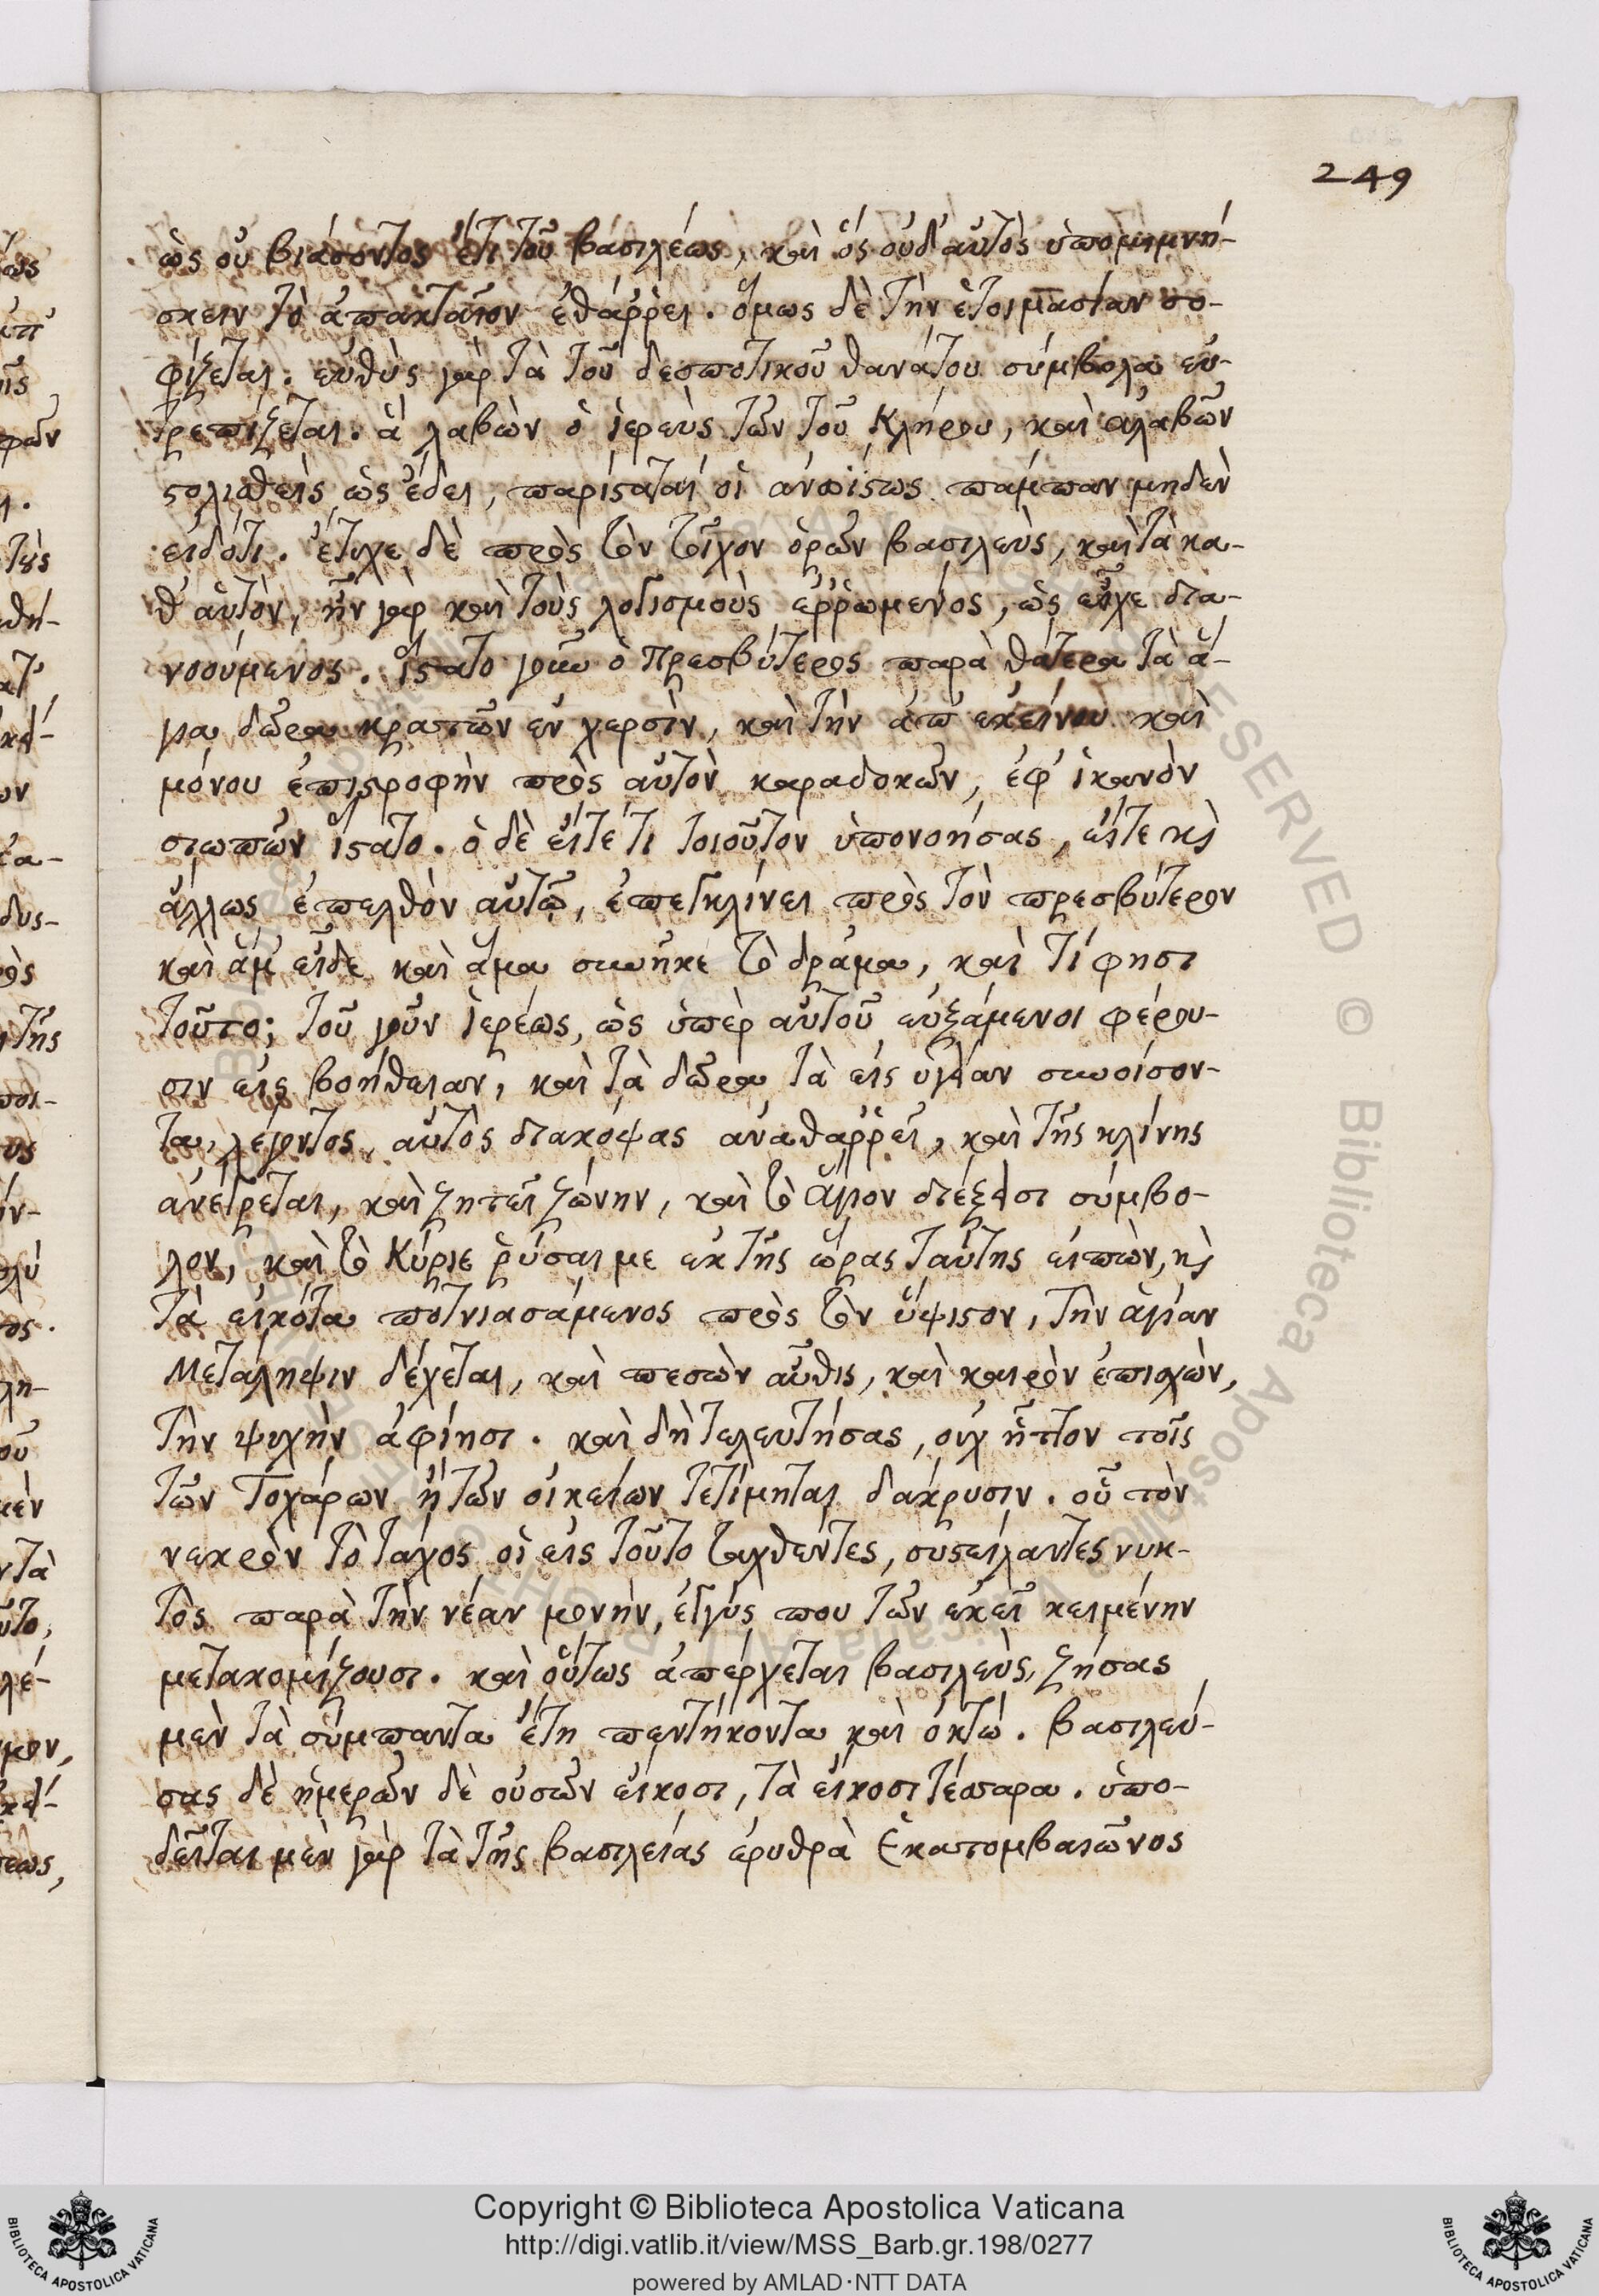 249
ὡς οὐ βιώσοντος ἔτι τοῦ βασιλέως, καὶ ὃς οὐδ' αὐτὸς ὑπομιμνή-
σκειν τὸ ἀπακταῖον ἐθάῤῥει. ὅμως δὲ τὴν ἑτοιμασίαν σο-
φίζεται. εὐθὺς γὰρ τὰ τοῦ δεσποτικοῦ θανάτου σύμβολα εὐ-
τρεπίζεται. ἃ λαβὼν ὁ ἱερεὺς τῶν τοῦ Κλήρου, καὶ
στολισθεὶς ὡς ἔδει, παρίσταταί οἱ ἀνωΐστως πάμπαν μηδὲν
εἰδότι. ἔτυχε δὲ πρὸς τὸν τοῖχον ὁρῶν βασιλεὺς, καὶ τὰ κα-
θ' αὑτὸν, ἦν γὰρ καὶ τοὺς λογισμοὺς ἐῤῥωμένος, ὡς εἶχε δια-
νοούμενος. ἵστατο γοῦν ὁ πρεσβύτερος παρὰ θάτερα τὰ ἅ-
για δῶρα κρατῶν ἐν χερσὶν, καὶ τὴν ἀπ' ἐκείνου καὶ
μόνου ἐπιστροφὴν πρὸς αὐτὸν καραδοκῶν, ἐφ' ἱκανὸν
σιωπῶν ἵστατο. ὁ δὲ εἴτε τι τοιοῦτον ὑπονοήσας, εἴτε κὶ
ἄλλως ἐπελθὸν αὐτῷ, ἐπεγκλίνει πρὸς τὸν πρεσβύτερον
καὶ ἅμ' εἶδε καὶ ἅμα συνῆκε τὸ δρᾶμα, καὶ τί φησι
τοῦτο; τοῦ γοῦν ἱερέως, ὡς ὑπὲρ αὐτοῦ εὐξάμενοι φέρου-
σιν εἰς βοήθειαν, καὶ τὰ δῶρα τὰ εἰς ὑγείαν συνοίσον-
τα, λέγοντος, αὐτὸς διακόψας ἀναθαῤῥεῖ, καὶ τῆς κλίνης
ἀνεγείρεται, καὶ ζητεῖ ζώνην, καὶ τὸ ἅγιον διέξεισι σύμβο-
λον, καὶ τὸ Κύριε ῥύσαι με ἐκ τῆς ὥρας ταύτης εἰπὼν, κὶ
τὰ εἰκότα ποτνιασάμενος πρὸς τὸν ὕψιστον, τὴν ἁγίαν
Μετάληψιν δέχεται, καὶ πεσὼν αὖθις, καὶ καιρὸν ἐπισχὼν,
τὴν ψυχὴν ἀφίησι. καὶ δὴ τελευτήσας, οὐχ ἧττον τοῖς
τῶν Τοχάρων ἢ τῶν οἰκείων τετίμηται δάκρυσιν. οὗ τὸν
νεκρὸν τὸ τάχος οἱ εἰς τοῦτο ταχθέντες, συστείλαντες νυκ-
τὸς παρὰ τὴν νέαν μονὴν, ἐγγύς που τῶν ἐκεῖ κειμένην
μετακομίζουσι. καὶ οὕτως ἀπέρχεται βασιλεὺς, ζήσας
μὲν τὰ σύμπαντα ἔτη πεντήκοντα καὶ ὀκτώ. βασιλεύ-
σας δὲ ἡμερῶν δὲ οὐσῶν εἴκοσι, τὰ εἴκοσι τέσσαρα. ὑπο-
δεῖται μὲν γὰρ τὰ τῆς βασιλείας ἐρυθρὰ Ἑκατομβαιῶνος
Copyright © Biblioteca Apostolica Vaticana
http://digi.vatlib.it/view/MSS_Barb.gr.198/0277
powered by AMLAD·NTT DATA